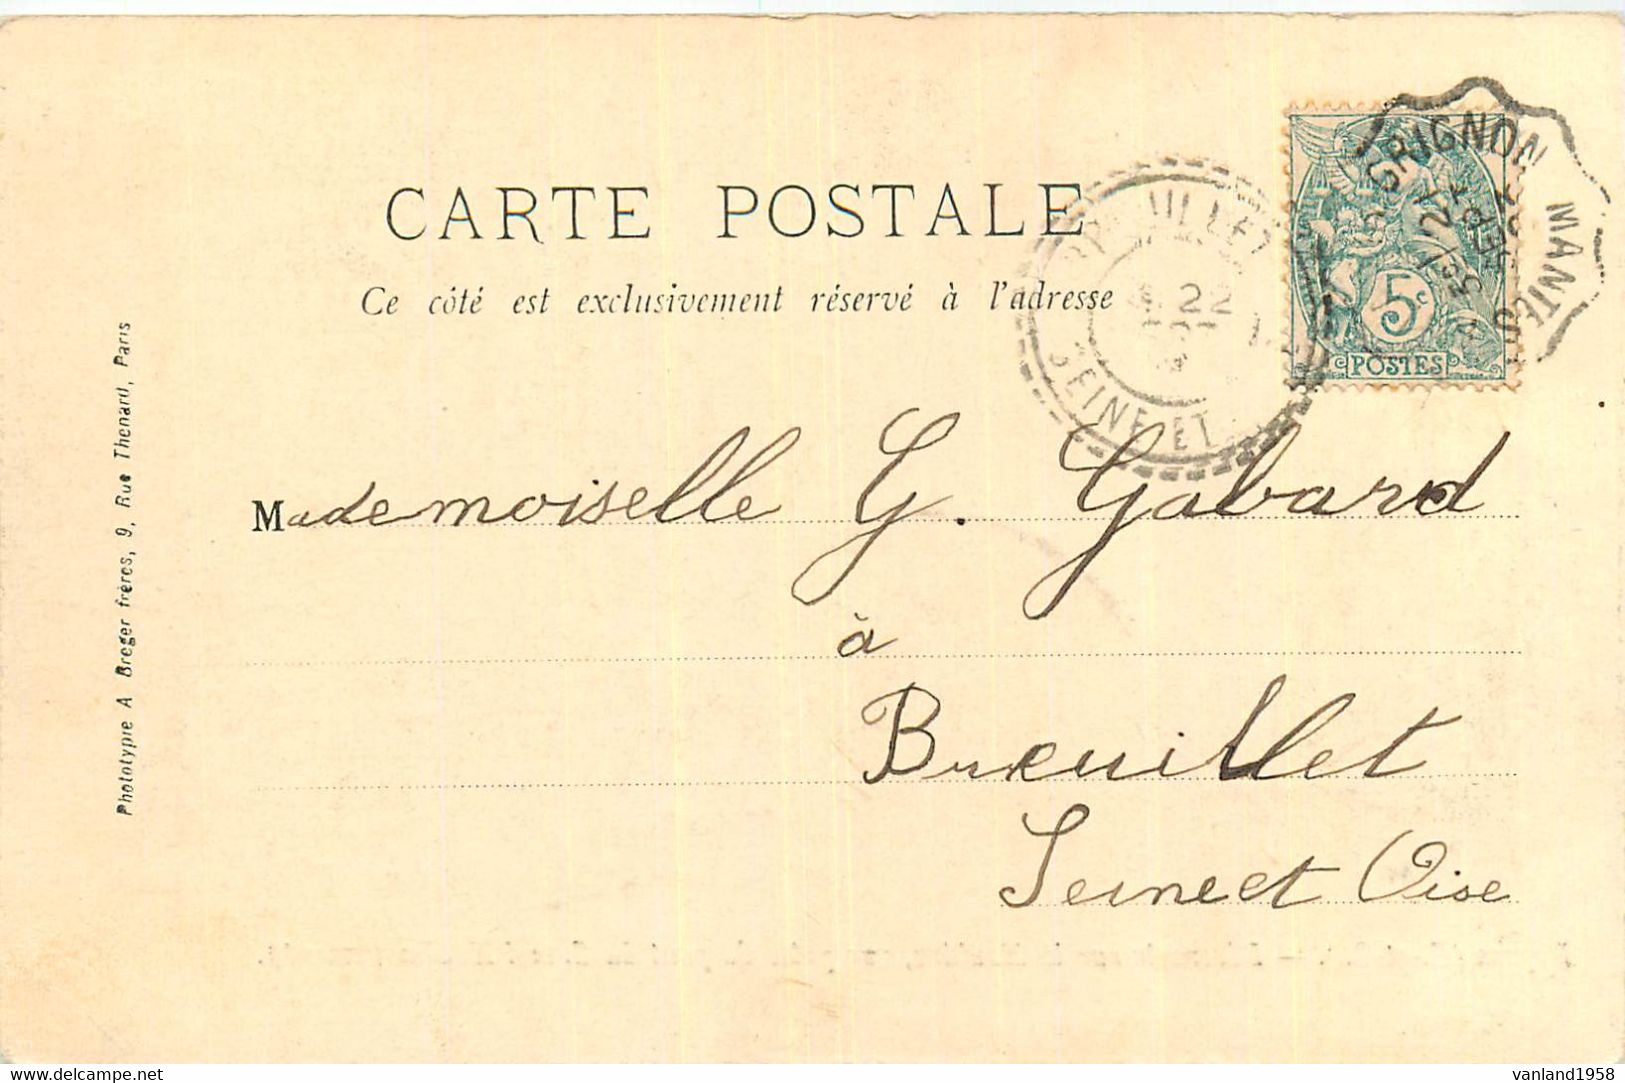 CARTE POSTALE
Ce côté est exclusivement réservé à l'adresse
GRIGNON
MANTES
21
SEPT
BREUILLET
22
SEINE-ET
5c
POSTES
Mademoiselle G. Gabard
à
Breuillet
Seine et Oise
Phototypie A Breger frères, 9, Rue Thenard, Paris
vanland1958